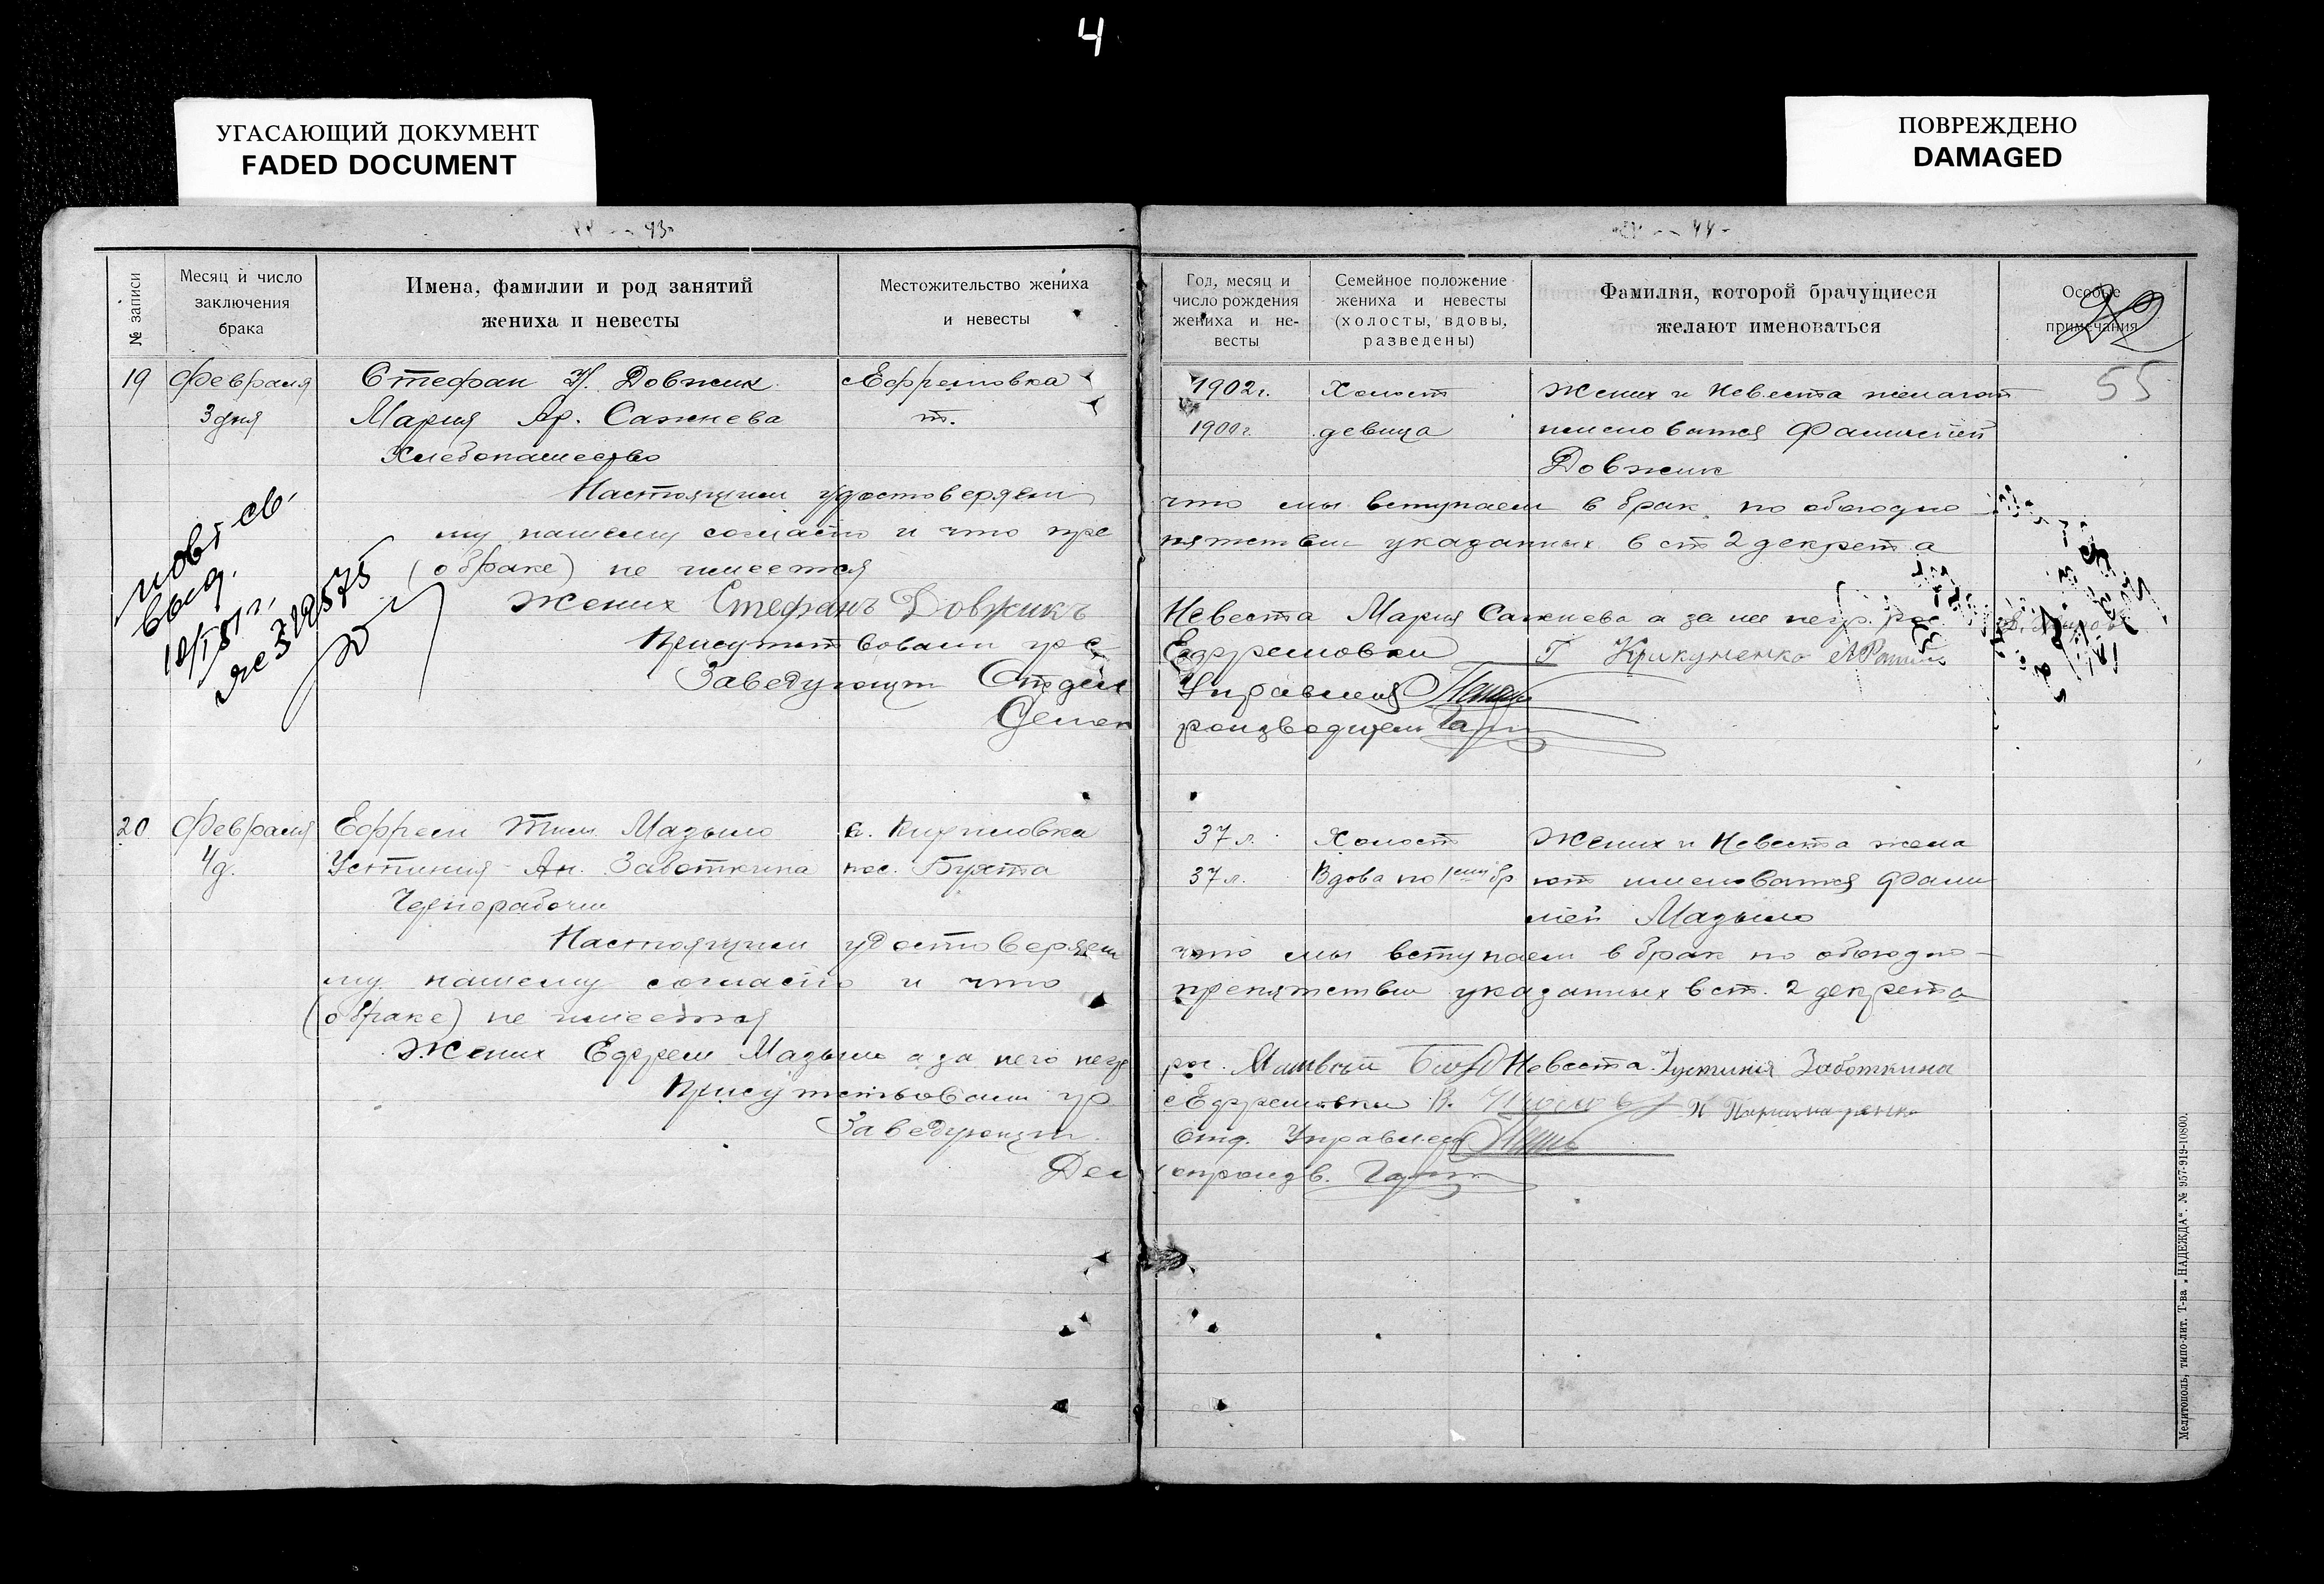 4
УГАСАЮЩИЙ ДОКУМЕНТ
FADED DOCUMENT
ПОВРЕЖДЕНО
DAMAGED
43
44
№ записи
Месяц и число заключения брака
Имена, фамилии и род занятий жениха и невесты
Местожительство жениха и невесты
Год, месяц и число рождения жениха и невесты
Семейное положение жениха и невесты (холосты, вдовы, разведены)
Фамилия, которой брачущиеся желают именоваться
Особые примечания
55
19 Февраля Стефан У. Довжик с Ефремовка 1902 г. Холост Жених и Невеста желают
3 дня Мария Ар. Сажнева т. 1900 г. девица именоватся Фамилией
Хлебопашество Довжик
Настоящим удостоверяем что мы вступаем в брак по обоюдно
му нашему согласию и что пре пятствии указанных в ст 2 декрета
(о браке) не имеется
Жених Стефанъ Довжикъ Невеста Мария Сажнева а за нее негр. рос
Присутствовали гр с Ефремовки Г Крикуненко
Заведующий Отдел Управления
роизводител
повт св.
выд.
20 Февраля Ефрем Тим. Мазыло с. Кирилловка 37 л. Холост Жених и Невеста жела
4 д. Устиния Ан. Заботкина пос. Бухта 37 л. Вдова по 1 ему бр ют именоватся Фами
Чернорабочие лией Мазыло
Настоящим удостоверяем что мы вступаем в брак по обоюдно-
му нашему согласию и что препятствии указанных в ст. 2 декрета
(о браке) не имеется
Жених Ефрем Мазыло а за него негр рос. Невеста Густиния Заботкина
Присутствовали гр с Ефремовки В.
Заведующий Отд. Управлен
Дел опроизв.
Мелитополь, типо-лит. Т-ва „НАДЕЖДА“. № 957-919-10800.